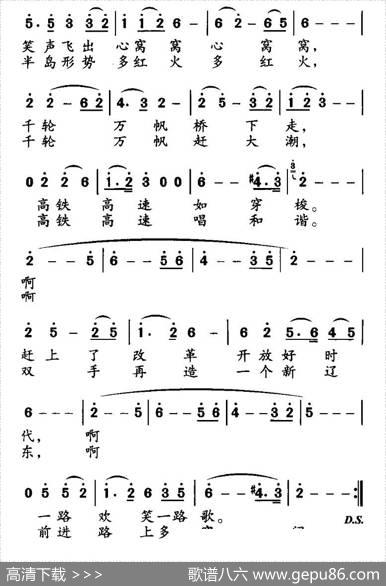 5. 5 3 3 2 | 1 1 2 6 - | 6 2 - 6 5 | 6 - - - |
笑声飞出 心窝 窝 心 窝 窝,
半岛形势 多红 火 多 红 火,
2 2 - 6 2 | 4. 3 2 - | 2 5 - 3 2 | 1 2 3 - |
千轮 万 帆 桥 下 走,
千轮 万 帆 赶 大 潮,
0 2 2 6 | 1. 2 3 0 0 | 6 - - #4. 3 | 2 - - - |
高铁 高 速 如 穿 梭。
高铁 高速 唱 和 谐。
2 - - 5 | 6 - - 5 6 | 4 - - 3 5 | 2 - - - |
啊
啊
2 5 - 2 5 | 1. 2 6 - | 6 2 5. 6 4 5 |
赶 上 了 改 革 开 放 好 时
双 手 再 造 一 个 新 辽
6 - - - | 2 - - 5 | 6 - - 5 6 | 4 - - 3 2 | 5 - - - |
代, 啊
东, 啊
0 5 5 2 | 1 2 6 3 5 | 6 - - #4. 3 | 2 - - - :||
一路 欢 笑一路 歌。 D.S.
前进 路 上多
高清下载 >>>
歌谱八六 www.gepu86.com